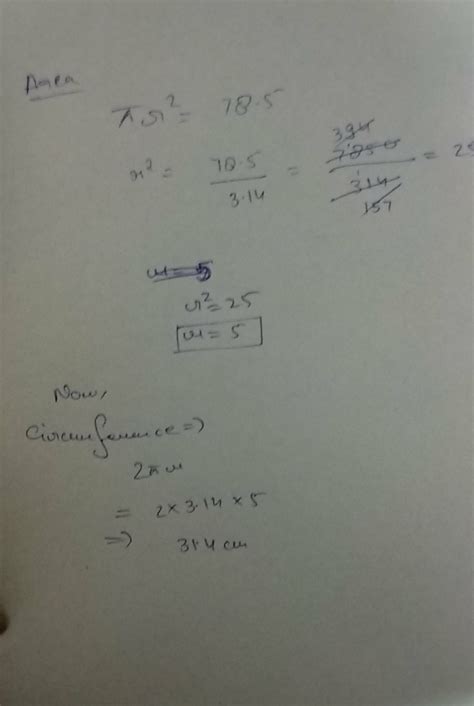 Area
πr² = 78.5
r² = 78.5/3.14 = 7850/314 = 25
r = 5
r² = 25
r = 5
Now,
Circumference ⇒
2πr
= 2×3.14×5
⇒ 31.4 cm